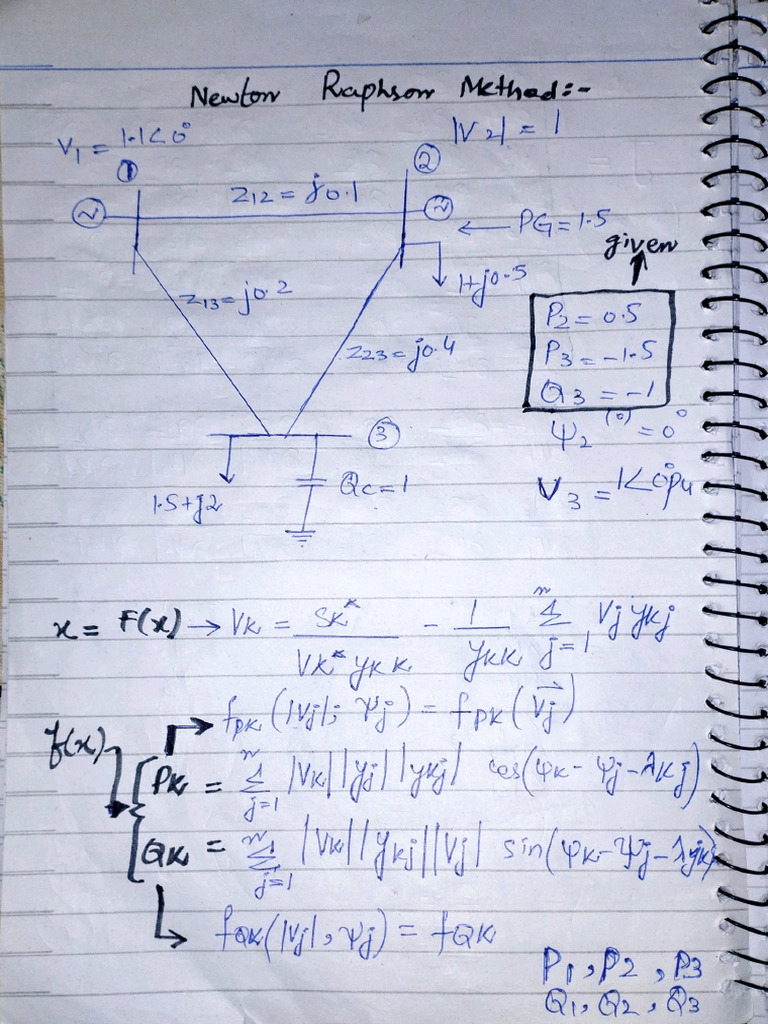 Newton Raphson Method:-
V₁ = 1.1<0°
|V2| = 1
①
②
Z12 = j0.1
← PG = 1.5
given
1+j0.5
Z13 = j0.2
P2 = 0.5
Z23 = j0.4
P3 = -1.5
Q3 = -1
ψ₂⁽⁰⁾ = 0°
③
V3 = 1∠0°pu
1.5+j2
Qc = 1
x = F(x) → Vk = Sk* / Vk* ykk - 1/ykk Σ(j=1 to n) Vj ykj
f(x)
fpk (|Vj|; ψj) = fpk (Vj)
Pk = Σ(j=1 to n) |Vk| |yj| |ykj| cos(ψk - ψj - λkj)
Qk = Σ(j=1 to n) |Vk| |ykj| |Vj| sin(ψk - ψj - λjk)
fQk (|Vj|, ψj) = fQk
P1, P2, P3
Q1, Q2, Q3